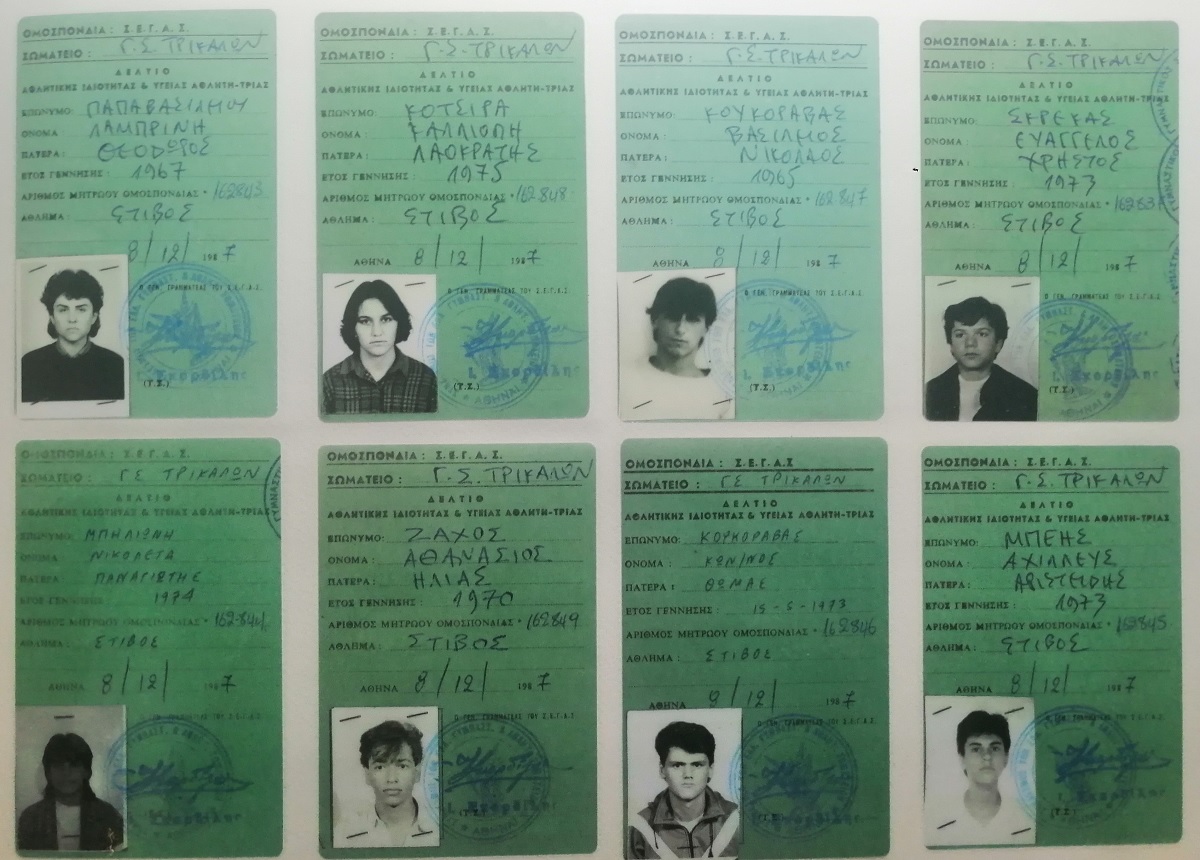 ΟΜΟΣΠΟΝΔΙΑ : Σ.Ε.Γ.Α.Σ.
ΣΩΜΑΤΕΙΟ : Γ.Σ. ΤΡΙΚΑΛΩΝ
ΔΕΛΤΙΟ
ΑΘΛΗΤΙΚΗΣ ΙΔΙΟΤΗΤΑΣ & ΥΓΕΙΑΣ ΑΘΛΗΤΗ-ΤΡΙΑΣ
ΕΠΩΝΥΜΟ: ΠΑΠΑΒΑΣΙΛΕΙΟΥ
ΟΝΟΜΑ ΛΑΜΠΡΙΝΗ
ΠΑΤΕΡΑ : ΘΕΟΔΩΡΟΣ
ΕΤΟΣ ΓΕΝΝΗΣΗΣ : 1967
ΑΡΙΘΜΟΣ ΜΗΤΡΩΟΥ ΟΜΟΣΠΟΝΔΙΑΣ • 162843
ΑΘΛΗΜΑ : ΣΤΙΒΟΣ
8/12/ 1987
Ο ΓΕΝ. ΓΡΑΜΜΑΤΕΑΣ ΤΟΥ Σ.Ε.Γ.Α.Σ.
(Τ.Σ.)
ΟΜΟΣΠΟΝΔΙΑ : Σ.Ε.Γ.Α.Σ.
ΣΩΜΑΤΕΙΟ : Γ.Σ. ΤΡΙΚΑΛΩΝ
ΔΕΛΤΙΟ
ΑΘΛΗΤΙΚΗΣ ΙΔΙΟΤΗΤΑΣ & ΥΓΕΙΑΣ ΑΘΛΗΤΗ-ΤΡΙΑΣ
ΕΠΩΝΥΜΟ: ΚΟΤΣΙΡΑ
ΟΝΟΜΑ : ΚΑΛΛΙΟΠΗ
ΠΑΤΕΡΑ : ΛΑΟΚΡΑΤΗΣ
ΕΤΟΣ ΓΕΝΝΗΣΗΣ : 1975
ΑΡΙΘΜΟΣ ΜΗΤΡΩΟΥ ΟΜΟΣΠΟΝΔΙΑΣ • 162848
ΑΘΛΗΜΑ : ΣΤΙΒΟΣ
ΑΘΗΝΑ 8/12/ 1987
Ο ΓΕΝ. ΓΡΑΜΜΑΤΕΑΣ ΤΟΥ Σ.Ε.Γ.Α.Σ.
(Τ.Σ.)
ΟΜΟΣΠΟΝΔΙΑ : Σ.Ε.Γ.Α.Σ.
ΣΩΜΑΤΕΙΟ : Γ.Σ. ΤΡΙΚΑΛΩΝ
ΔΕΛΤΙΟ
ΑΘΛΗΤΙΚΗΣ ΙΔΙΟΤΗΤΑΣ & ΥΓΕΙΑΣ ΑΘΛΗΤΗ-ΤΡΙΑΣ
ΕΠΩΝΥΜΟ: ΚΟΥΚΟΡΑΒΑΣ
ΟΝΟΜΑ : ΒΑΣΙΛΕΙΟΣ
ΠΑΤΕΡΑ : ΝΙΚΟΛΑΟΣ
ΕΤΟΣ ΓΕΝΝΗΣΗΣ : 1965
ΑΡΙΘΜΟΣ ΜΗΤΡΩΟΥ ΟΜΟΣΠΟΝΔΙΑΣ • 162847
ΑΘΛΗΜΑ : ΣΤΙΒΟΣ
ΑΘΗΝΑ 8/12/ 1987
Ο ΓΕΝ. ΓΡΑΜΜΑΤΕΑΣ ΤΟΥ Σ.Ε.Γ.Α.Σ.
Ι. Σκορδίλης
(Τ.Σ.)
ΟΜΟΣΠΟΝΔΙΑ : Σ.Ε.Γ.Α.Σ.
ΣΩΜΑΤΕΙΟ : Γ.Σ. ΤΡΙΚΑΛΩΝ
ΔΕΛΤΙΟ
ΑΘΛΗΤΙΚΗΣ ΙΔΙΟΤΗΤΑΣ & ΥΓΕΙΑΣ ΑΘΛΗΤΗ-ΤΡΙΑΣ
ΕΠΩΝΥΜΟ: ΣΚΡΕΚΑΣ
ΟΝΟΜΑ : ΕΥΑΓΓΕΛΟΣ
ΠΑΤΕΡΑ : ΧΡΗΣΤΟΣ
ΕΤΟΣ ΓΕΝΝΗΣΗΣ : 1973
ΑΡΙΘΜΟΣ ΜΗΤΡΩΟΥ ΟΜΟΣΠΟΝΔΙΑΣ •
ΑΘΛΗΜΑ : ΣΤΙΒΟΣ
ΑΘΗΝΑ 8/12/ 1987
Ο ΓΕΝ. ΓΡΑΜΜΑΤΕΑΣ ΤΟΥ Σ.Ε.Γ.Α.Σ.
Ι. Σκορδίλης
(Τ.Σ.)
ΟΜΟΣΠΟΝΔΙΑ : Σ.Ε.Γ.Α.Σ.
ΣΩΜΑΤΕΙΟ : ΓΣ ΤΡΙΚΑΛΩΝ
ΔΕΛΤΙΟ
ΑΘΛΗΤΙΚΗΣ ΙΔΙΟΤΗΤΑΣ & ΥΓΕΙΑΣ ΑΘΛΗΤΗ-ΤΡΙΑΣ
ΕΠΩΝΥΜΟ: ΜΠΗΛΙΩΝΗ
ΟΝΟΜΑ ΝΙΚΟΛΕΤΑ
ΠΑΤΕΡΑ ΠΑΝΑΓΙΩΤΗΣ
ΕΤΟΣ ΓΕΝΝΗΣΗΣ : 1974
ΑΡΙΘΜΟΣ ΜΗΤΡΩΟΥ ΟΜΟΣΠΟΝΔΙΑΣ •
ΑΘΛΗΜΑ : ΣΤΙΒΟΣ
8/12/ 1987
Ο ΓΕΝ. ΓΡΑΜΜΑΤΕΑΣ ΤΟΥ Σ.Ε.Γ.Α.Σ.
Ι. Σκορδίλης
ΟΜΟΣΠΟΝΔΙΑ : Σ.Ε.Γ.Α.Σ.
ΣΩΜΑΤΕΙΟ : Γ.Σ. ΤΡΙΚΑΛΩΝ
ΔΕΛΤΙΟ
ΑΘΛΗΤΙΚΗΣ ΙΔΙΟΤΗΤΑΣ & ΥΓΕΙΑΣ ΑΘΛΗΤΗ-ΤΡΙΑΣ
ΕΠΩΝΥΜΟ: ΖΑΧΟΣ
ΟΝΟΜΑ : ΑΘΑΝΑΣΙΟΣ
ΠΑΤΕΡΑ : ΗΛΙΑΣ
ΕΤΟΣ ΓΕΝΝΗΣΗΣ : 1970
ΑΡΙΘΜΟΣ ΜΗΤΡΩΟΥ ΟΜΟΣΠΟΝΔΙΑΣ • 162849
ΑΘΛΗΜΑ : ΣΤΙΒΟΣ
ΑΘΗΝΑ 8/12/ 1987
Ο ΓΕΝ. ΓΡΑΜΜΑΤΕΑΣ ΤΟΥ Σ.Ε.Γ.Α.Σ.
Ι. Σκορδίλης
(Τ.Σ.)
ΟΜΟΣΠΟΝΔΙΑ : Σ.Ε.Γ.Α.Σ
ΣΩΜΑΤΕΙΟ : ΓΣ ΤΡΙΚΑΛΩΝ
ΔΕΛΤΙΟ
ΑΘΛΗΤΙΚΗΣ ΙΔΙΟΤΗΤΑΣ & ΥΓΕΙΑΣ ΑΘΛΗΤΗ-ΤΡΙΑΣ
ΕΠΩΝΥΜΟ: ΚΟΥΚΟΡΑΒΑΣ
ΟΝΟΜΑ : ΚΩΝ/ΝΟΣ
ΠΑΤΕΡΑ : ΘΩΜΑΣ
ΕΤΟΣ ΓΕΝΝΗΣΗΣ : 15-5-1973
ΑΡΙΘΜΟΣ ΜΗΤΡΩΟΥ ΟΜΟΣΠΟΝΔΙΑΣ • 162846
ΑΘΛΗΜΑ : ΣΤΙΒΟΣ
ΑΘΗΝΑ 8/12/ 1987
Ο ΓΕΝ. ΓΡΑΜΜΑΤΕΑΣ ΤΟΥ Σ.Ε.Γ.Α.Σ
Ι. Σκορδίλης
ΟΜΟΣΠΟΝΔΙΑ : Σ.Ε.Γ.Α.Σ.
ΣΩΜΑΤΕΙΟ : Γ.Σ. ΤΡΙΚΑΛΩΝ
ΔΕΛΤΙΟ
ΑΘΛΗΤΙΚΗΣ ΙΔΙΟΤΗΤΑΣ & ΥΓΕΙΑΣ ΑΘΛΗΤΗ-ΤΡΙΑΣ
ΕΠΩΝΥΜΟ: ΜΠΕΗΣ
ΟΝΟΜΑ : ΑΧΙΛΛΕΥΣ
ΠΑΤΕΡΑ : ΑΡΙΣΤΕΙΔΗΣ
ΕΤΟΣ ΓΕΝΝΗΣΗΣ : 1973
ΑΡΙΘΜΟΣ ΜΗΤΡΩΟΥ ΟΜΟΣΠΟΝΔΙΑΣ • 162845
ΑΘΛΗΜΑ : ΣΤΙΒΟΣ
ΑΘΗΝΑ 8/12/ 1987
Ο ΓΕΝ. ΓΡΑΜΜΑΤΕΑΣ ΤΟΥ Σ.Ε.Γ.Α.Σ
Ι. Σκορδίλης
(Τ.Σ.)